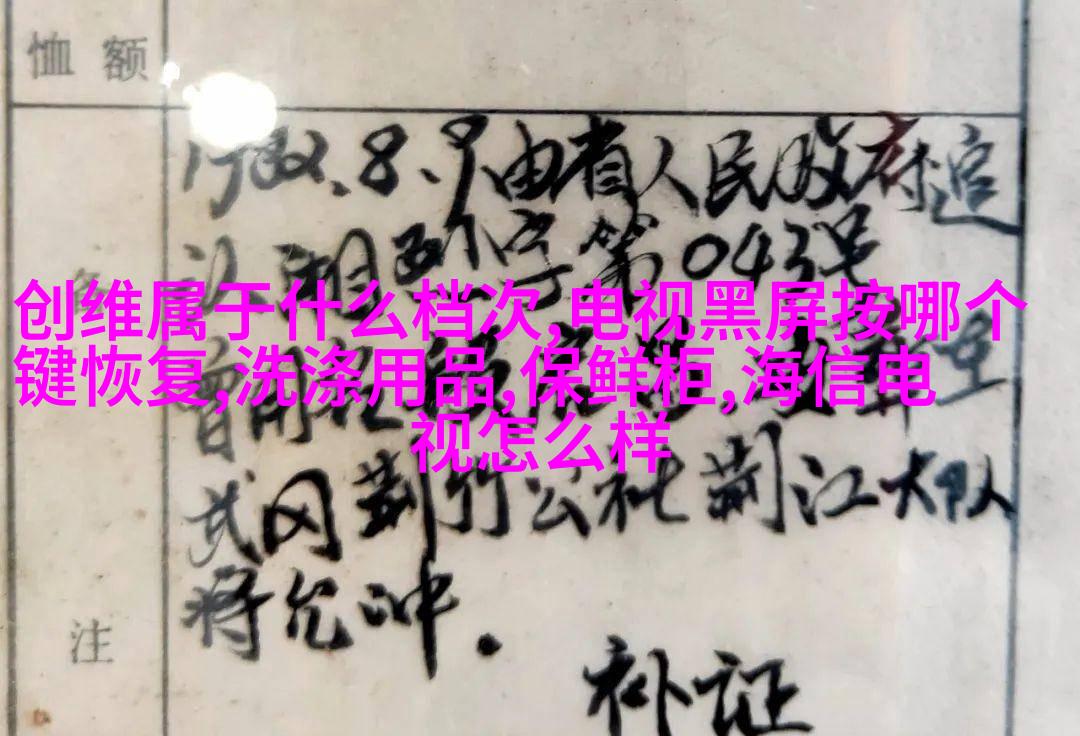 恤额
1982.8.9由省人民政府追
认湘烈字第043号
创维属于什么档次,电视黑屏按哪个
键恢复,洗涤用品,保鲜柜,海信电
视怎么样
武冈荆竹公社荆江大队
将允冲.
注
补证